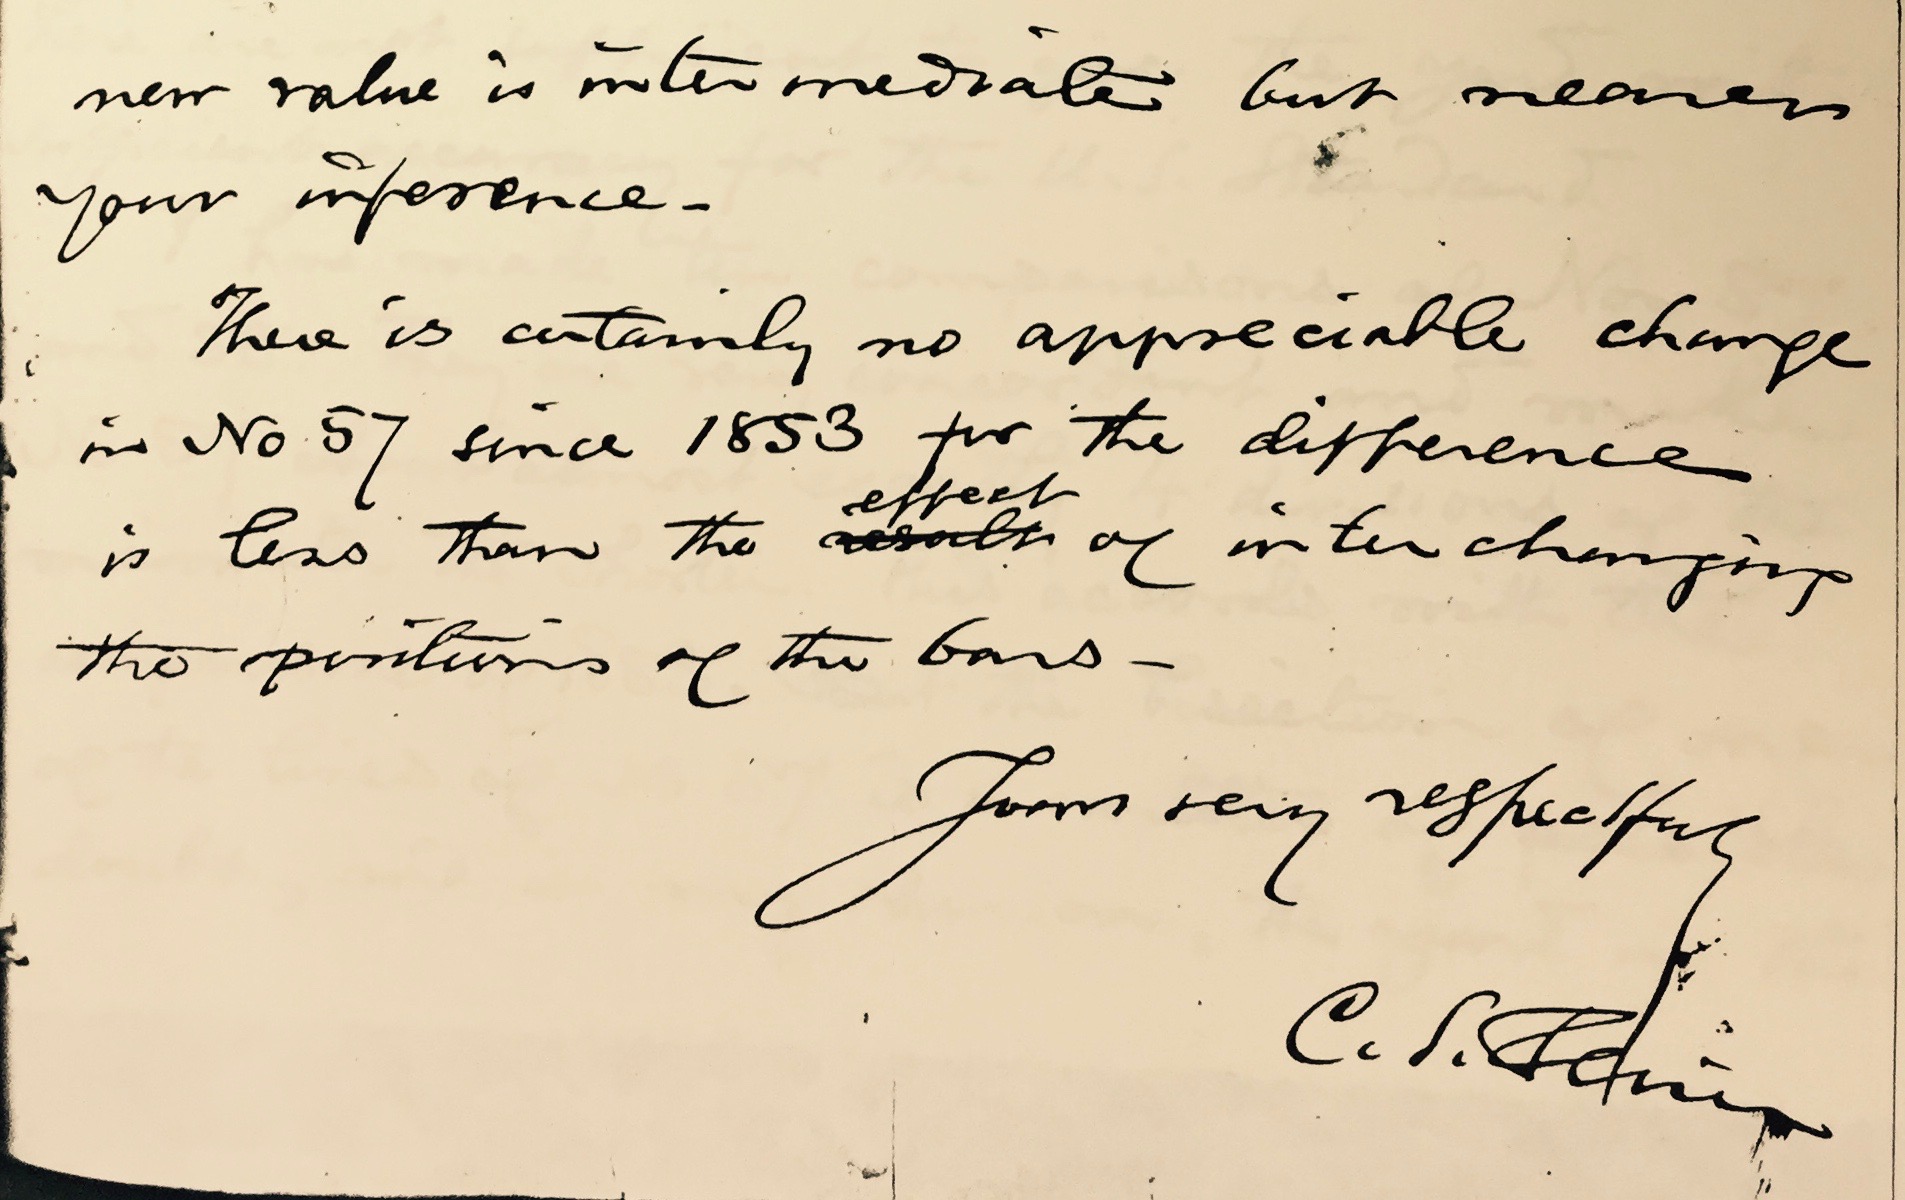 new value is intermediate but nearer
your inference -
There is certainly no appreciable change
in No 57 since 1853 for the difference
effect
is less than the result of interchanging
the positions of the bars -
Yours very respectfully
C. S. Peirce